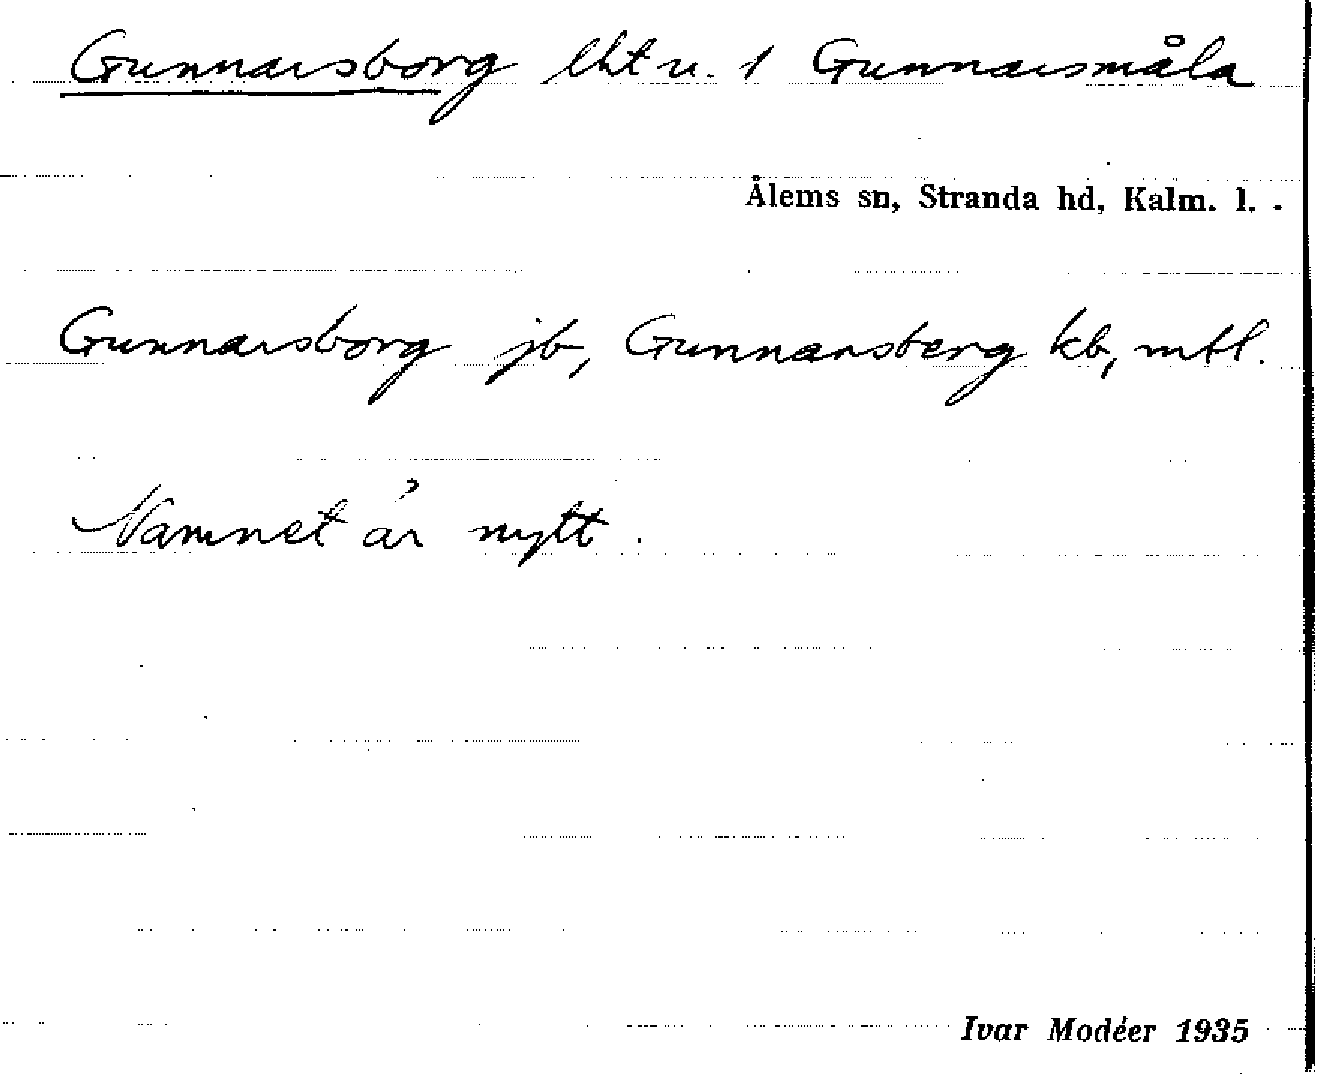 Gunnarsborg lht u. 1 Gunnarsmåla
Ålems sn, Stranda hd, Kalm. l.
Gunnarsborg jb, Gunnarsberg kb, mtl.
Namnet är nytt.
Ivar Modéer 1935